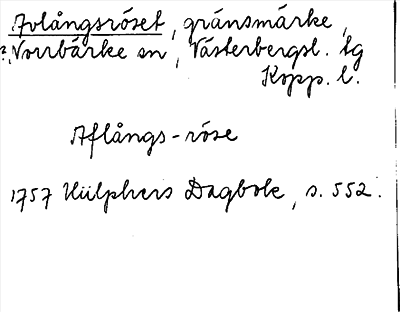 Avlångsröset, gränsmärke,
?, Norrbärke sn, Västerbergsl. tg
Kopp. l.
Aflångs-röse
1757 Hülphers Dagbok, s. 552.